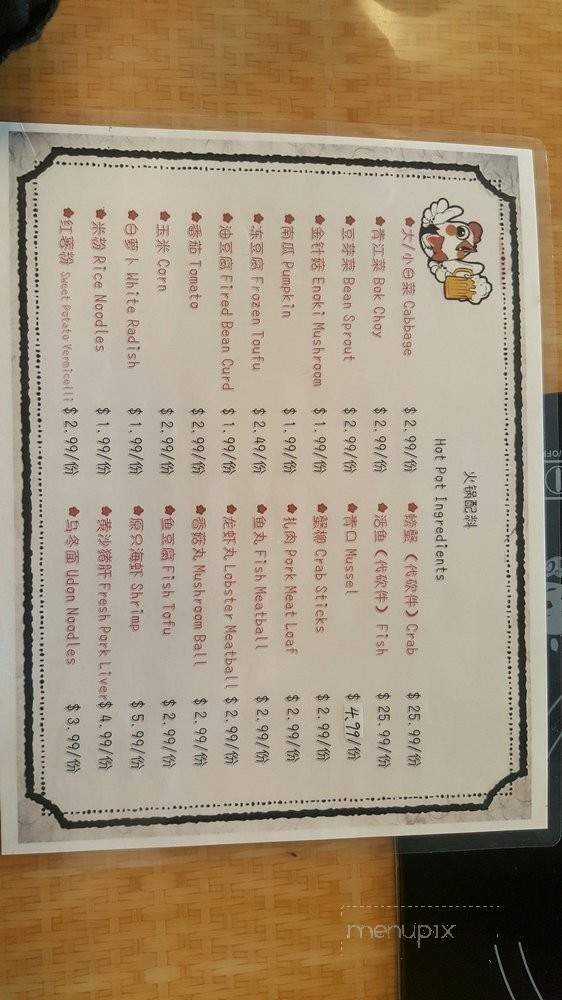 火锅配料
Hot Pot Ingredients
大/小白菜 Cabbage $ 2.99/份
青江菜 Bok Choy $ 2.99/份
豆芽菜 Bean Sprout $ 2.99/份
金针菇 Enoki Mushroom $ 1.99/份
南瓜 Pumpkin $ 1.99/份
冻豆腐 Frozen Toufu $ 2.49/份
油豆腐 Fired Bean Curd $ 1.99/份
番茄 Tomato $ 2.99/份
玉米 Corn $ 2.99/份
白萝卜 White Radish $ 1.99/份
米粉 Rice Noodles $ 1.99/份
红薯粉 Sweet Potato Vermicelli $ 2.99/份
螃蟹（代砍件）Crab $ 25.99/份
活鱼（代砍件）Fish $ 25.99/份
青口 Mussel $ 4.99/份
蟹柳 Crab Sticks $ 2.99/份
扎肉 Pork Meat Loaf $ 2.99/份
鱼丸 Fish Meatball $ 2.99/份
龙虾丸 Lobster Meatball $ 2.99/份
香菇丸 Mushroom Ball $ 2.99/份
鱼豆腐 Fish Tofu $ 2.99/份
原只海虾 Shrimp $ 5.99/份
黄沙猪肝 Fresh Pork Liver $ 4.99/份
乌冬面 Udon Noodles $ 3.99/份
menupix